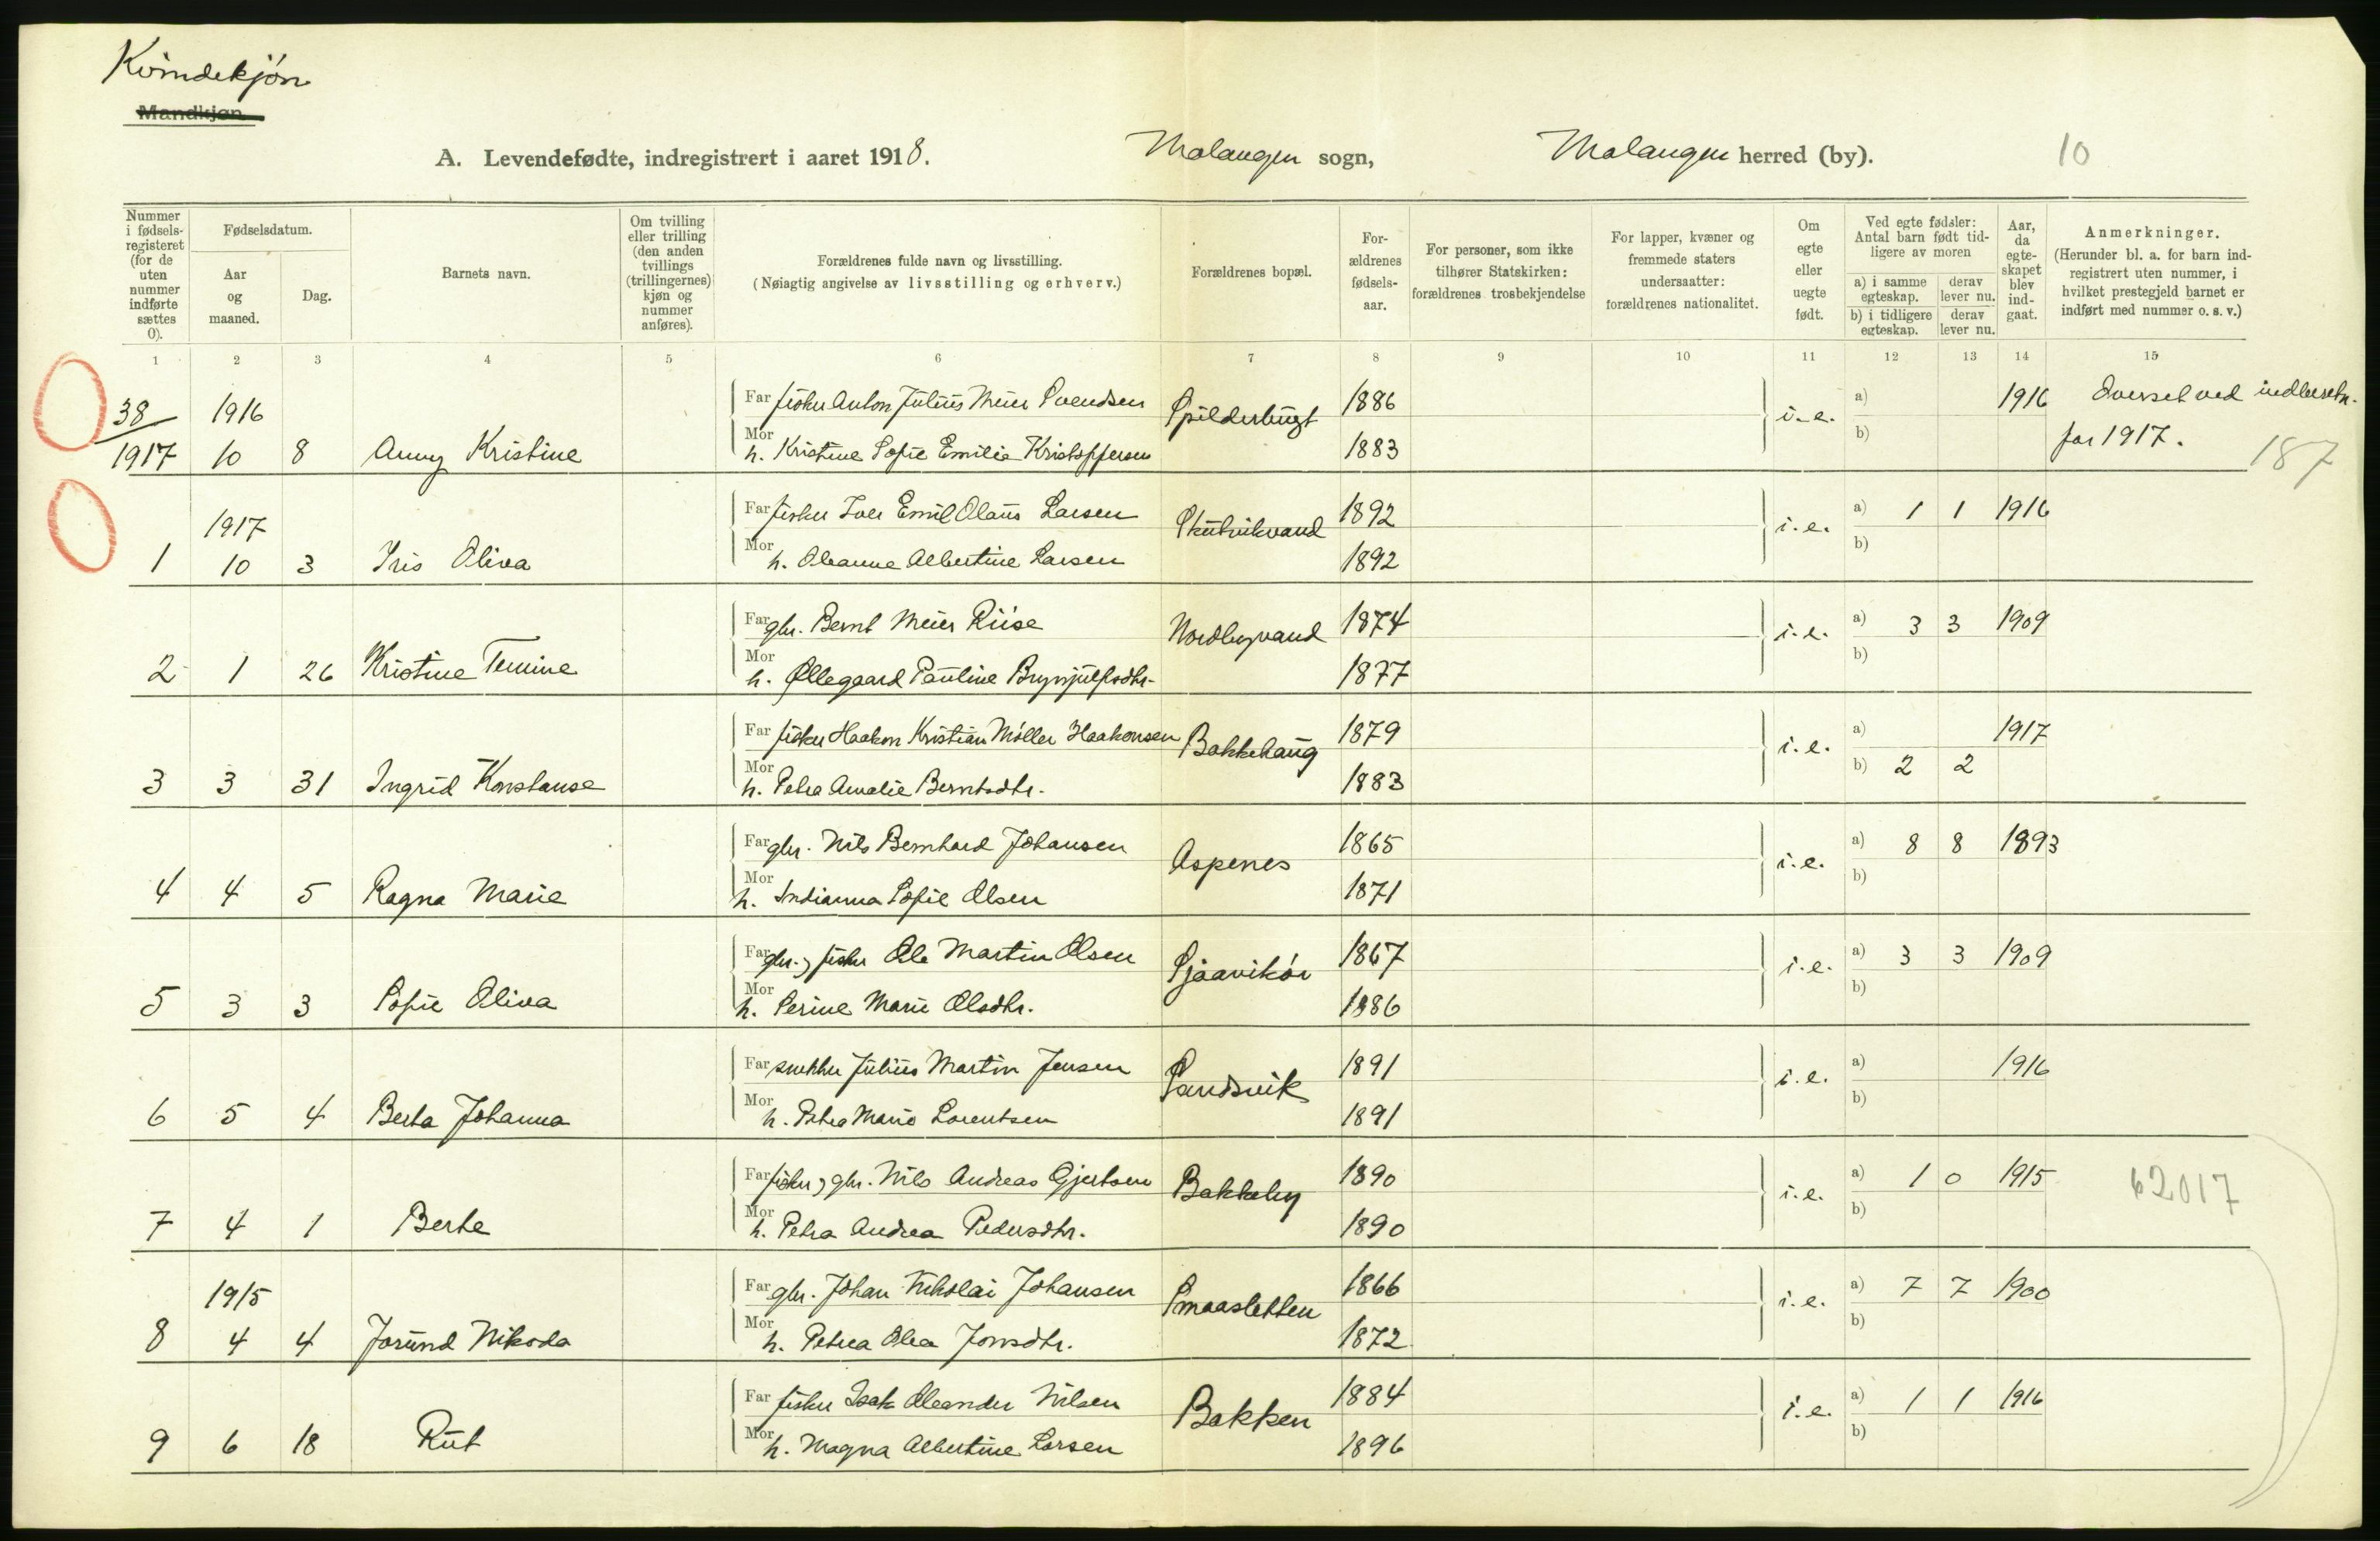 Kvindekjøn
Mandkjøn.
A. Levendefødte, indregistrert i aaret 1918. Malangen sogn, Malangen herred (by). 10
Nummer i fødselsregisteret (for de uten nummer indførte sættes 0). Fødselsdatum. Aar og maaned. Dag. Barnets navn. Om tvilling eller trilling (den anden tvillings (trillingernes) kjøn og nummer anføres). Forældrenes fulde navn og livsstilling. (Nøiagtig angivelse av livsstilling og erhverv.) Forældrenes bopæl. Forældrenes fødselsaar. For personer, som ikke tilhører Statskirken: forældrenes trosbekjendelse For lapper, kvæner og fremmede staters undersaatter: forældrenes nationalitet. Om egte eller uegte født. Ved egte fødsler: Antal barn født tidligere av moren a) i samme egteskap. derav lever nu. b) i tidligere egteskap. derav lever nu. Aar, da egteskapet blev indgaat. Anmerkninger. (Herunder bl. a. for barn indregistrert uten nummer, i hvilket prestegjeld barnet er indført med nummer o. s. v.)
1 2 3 4 5 6 7 8 9 10 11 12 13 14 15
38 1916 Far fisker Anton Julius Meier Svendsen Spilderbugt 1886 i. e. a) 1916 Overset ved indberetn.
1917 10 8 Anny Kristine Mor h. Kristine Sofie Emilie Kristoffersen 1883 b) for 1917. 187
1917 Far fisker Iver Emil Olaus Larsen Skutvikvand 1892 i. e. a) 1 1 1916
1 10 3 Iris Oliva Mor h. Oleanne Albertine Larsen 1892 b)
Far gbr. Bernt Meier Riise Nordbyvand 1874 i. e. a) 3 3 1909
2 1 26 Kristine Temine Mor h. Øllegaard Pauline Brynjulfsdtr. 1877 b)
Far fisker Haakon Kristian Møller Haakonsen Bakkehaug 1879 i. e. a) 1917
3 3 31 Ingrid Konstanse Mor h. Petra Amalie Berntsdtr. 1883 b) 2 2
Far gbr. Nils Bernhard Johansen Aspenes 1865 i. e. a) 8 8 1893
4 4 5 Ragna Marie Mor h. Indianna Sofie Olsen 1871 b)
Far gbr., fisker Ole Martin Olsen Sjaavikør 1867 i. e. a) 3 3 1909
5 3 3 Sofie Oliva Mor h. Serine Marie Olsdtr. 1886 b)
Far snekker Julius Martin Jensen Sandsvik 1891 i. e. a) 1916
6 5 4 Berta Johanna Mor h. Petra Marie Lorentsen 1891 b)
Far fisker, gbr. Nils Andreas Gjertsen Bakkeby 1890 i. e. a) 1 0 1915 62017
7 4 1 Berte Mor h. Petra Andrea Pedersdtr. 1890 b)
1915 Far gbr. Johan Nikolai Johansen Smaasletten 1866 i. e. a) 7 7 1900
8 4 4 Jorund Nikoda Mor h. Petrea Olea Jonsdtr. 1872 b)
Far fisker Isak Oleander Nilsen Bakken 1884 i. e. a) 1 1 1916
9 6 18 Rut Mor h. Magna Albertine Larsen 1896 b)